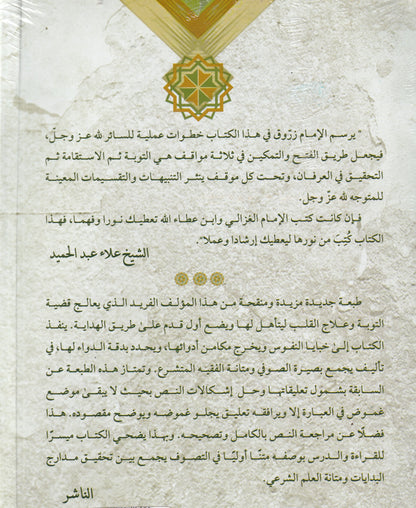 " يرسم الإمام زرّوق في هذا الكتاب خطوات عملية للسائر لله عز وجلّ،
فيجعل طريق الفتح والتمكين في ثلاثة مواقف هي التوبة ثم الاستقامة ثم
التحقيق في العرفان، وتحت كل موقف ينثر التنبيهات والتقسيمات المعينة
للمتوجه لله عزّ وجل.
فإن كانت كتب الإمام الغزالي وابن عطاء الله تعطيك نورا وفهما، فهذا
الكتاب كُتِبَ من نورها ليعطيك إرشادا وعملا".
الشيخ علاء عبد الحميد
طبعة جديدة مزيدة ومنقحة من هذا المؤلف الفريد الذي يعالج قضية
التوبة وعلاج القلب ليتأهل لها ويضع أول قدم علىٰ طريق الهداية. ينفذ
الكتاب إلىٰ خبايا النفوس ويخرج مكامن أدوائها، ويحدد بدقة الدواء لها، في
تأليف يجمع بصيرة الصوفي ومتانة الفقيه المتشرع. وتمتاز هذه الطبعة عن
السابقة بشمول تعليقاتها وحل إشكالات النص بحيث لا يبقىٰ موضع
غموض في العبارة إلا ويرافقه تعليق يجلو غموضه ويوضح مقصوده. هذا
فضلًا عن مراجعة النص بالكامل وتصحيحه. وبهذا يضحي الكتاب ميسرًا
للقراءة والدرس بوصفه متنًا أوليًا في التصوف يجمع بين تحقيق مدارج
البدايات ومتانة العلم الشرعي.
الناشر